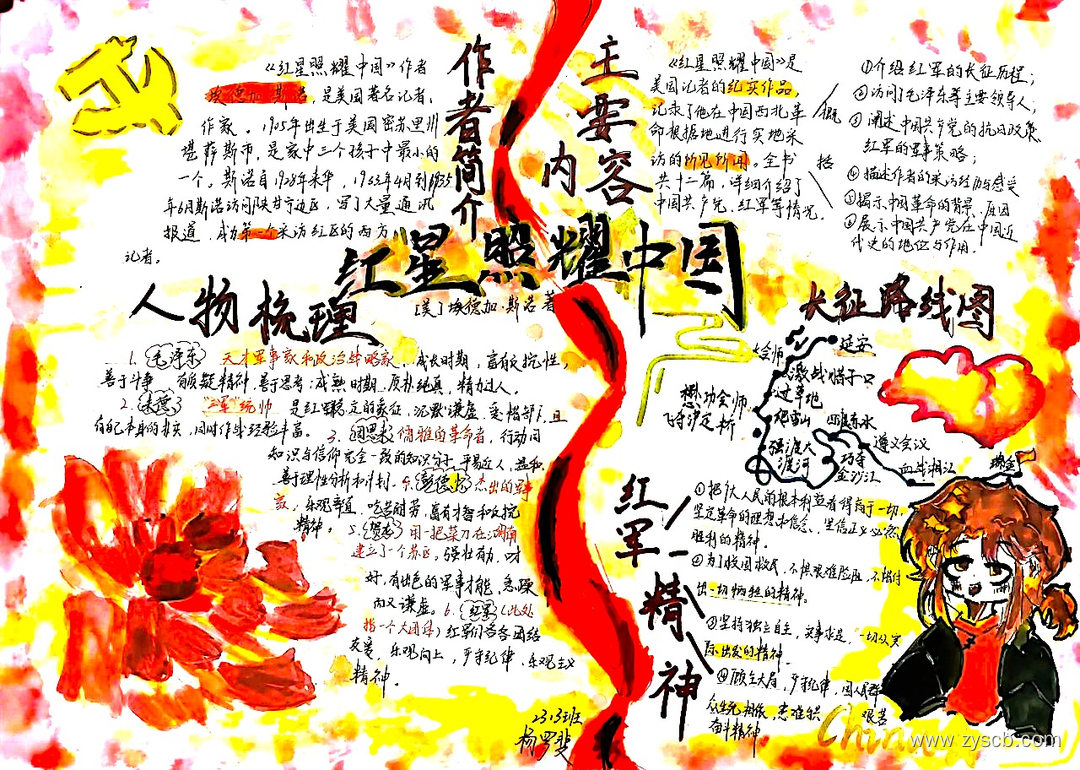 作者简介
《红星照耀中国》作者
埃德加·斯诺，是美国著名记者、
作家。1905年出生于美国密苏里州
堪萨斯市，是家中三个孩子中最小的
一个。斯诺自1928年来华，1933年4月到1935
年6月斯诺访问陕甘宁边区，写了大量通讯
报道，成为第一个采访红区的西方
记者。
主要内容
《红星照耀中国》是
美国记者的纪实作品，
记录了他在中国西北革
命根据地进行实地采
访的所见所闻。全书
共十二篇，详细介绍了
中国共产党、红军等情况。
概括
①介绍红军的长征历程；
②访问了毛泽东等主要领导人，
③阐述中国共产党的抗日政策
红军的军事策略；
④描述作者的采访经历与感受
⑤揭示中国革命的背景、原因
⑥展示中国共产党在中国近
代史的地位与作用。
红星照耀中国
[美]埃德加·斯诺 著
人物梳理
1. 毛泽东 天才军事家和政治战略家，成长时期，富有反抗性，
善于斗争 有质疑精神，善于思考；成熟时期，质朴纯真，精力过人。
2. 朱德
统帅 是红军稳定的象征，沉默谦虚，
同时作战经验丰富。
3. 周恩来 儒雅的革命者，行动间
知识与信仰完全一致的知识分子，平易近人，
善于理性分析和计划。4. 彭德怀 杰出的军事
家，乐观率直，吃苦耐劳，富有才智和反抗
精神。5. 贺龙 用一把菜刀在湖南
建立了一个苏区，强壮有力，
有出色的军事才能，急躁
而又谦虚。6. 红军（此处
指一个人团体）红军们劳务团结
友爱，乐观向上，严守纪律，乐观主义
精神。
长征路线图
大会师
延安
激战腊子口
过草地
爬雪山
懋功会师
飞夺泸定桥
强渡大
渡河
四渡赤水
巧夺
金沙江
遵义会议
血战湘江
瑞金
红军精神
①把人民的根本利益看得高于一切，
坚定革命的理想和信念，坚信正义必然
胜利的精神。
②为了救国救民，不怕艰难险阻，不惜付
出一切牺牲的精神。
③坚持独立自主，实事求是，一切从实
际出发的精神
④顾全大局，严守纪律，同人民群
众生死相依，患难 艰苦
奋斗精神
2313班
杨罗斐
www.zyscb.com